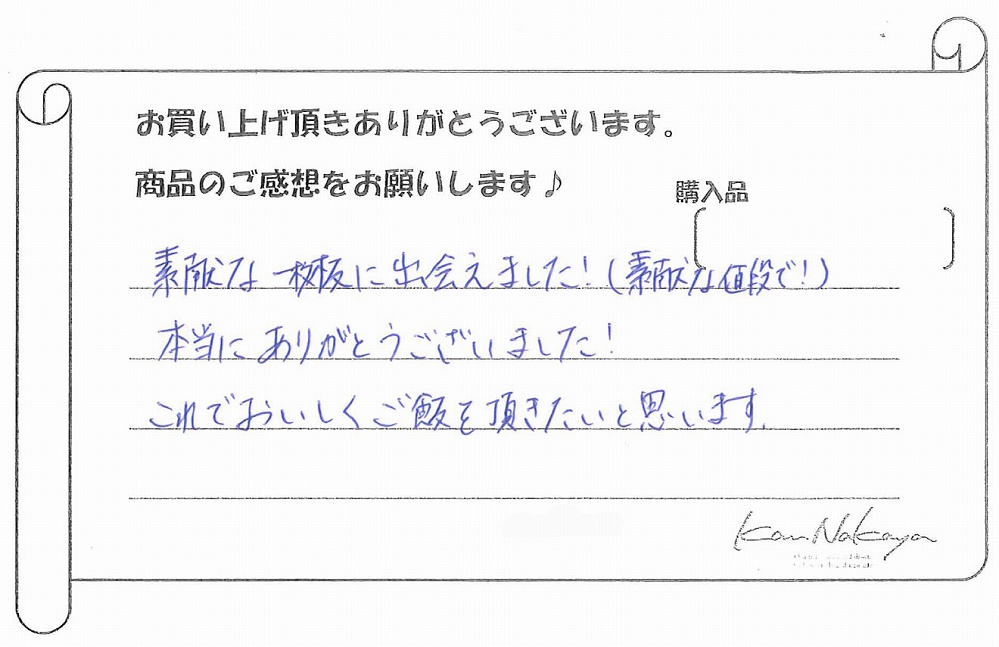 お買い上げ頂きありがとうございます。
商品のご感想をお願いします♪
購入品
素敵な一枚板に出会えました!(素敵な値段で!)
本当にありがとうございました!
これでおいしくご飯を頂きたいと思います。
Kan Nakaya